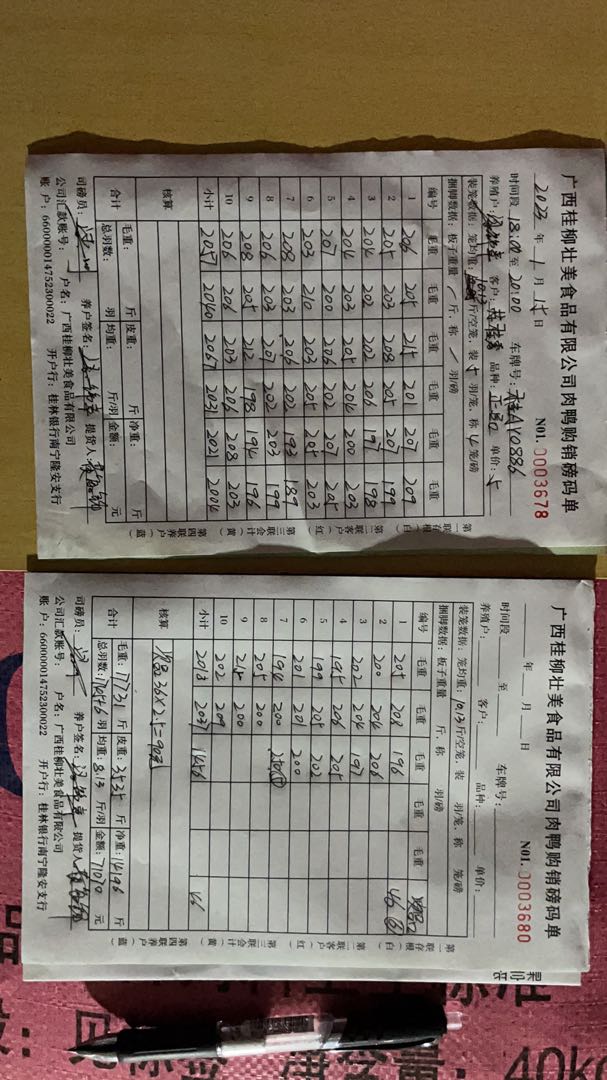 广西桂柳壮美食品有限公司肉鸭购销磅码单
2023 年 1 月 15 日 NO1. 0003678
时间段 18:00 至 20:00 车牌号: 桂AY0886
养殖户: 客户: 品种: 正品 单价: 5
装笼数据: 笼均重: 10.13 斤/空笼、装 5 羽/笼、称 4 笼/磅
捆脚数据: 板子重量 / 斤、称 / 羽/磅
编号 毛重 毛重 毛重 毛重 毛重
1 206 205 215 201 209
2 205 203 208 207 199
3 204 202 202 206 197 198
4 204 203 205 204 200 203
5 207 200 206 205 207 205
6 203 210 203 205 205 203
7 208 203 206 202 193 189
8 206 203 201 202 203 199
9 208 205 212 198 194 196
10 206 206 203 206 208 203
小计 2057 2040 2067 2031 2021 2004
核算
合计 毛重: 斤 皮重: 斤 净重: 斤
总羽数: 羽 均重: 斤/羽 金额: 元
司磅员: 养户签名: 提货人:
公司汇款账号: 户名: 广西桂柳壮美食品有限公司
账 户: 660000014752300022 开户行: 桂林银行南宁隆安支行
第一联存根(白) 第二联客户(红) 第三联会计(黄) 第四联养户(蓝)
广西桂柳壮美食品有限公司肉鸭购销磅码单
年 月 日 NO1. 0003680
时间段 至 车牌号:
养殖户: 客户: 品种: 单价:
装笼数据: 笼均重: 10.13 斤/空笼、装 羽/笼、称 笼/磅
捆脚数据: 板子重量 斤、称 羽/磅
编号 毛重 毛重 毛重 毛重 毛重
1 205 208 196 46 ⑥
2 200 204 206
3 202 204 197
4 195 206 205
5 199 205 202
6 201 201 200
7 194 200
8 205 200
9 215 200
10 202 209
小计 2013 2037 1456 46
核算
合计 毛重: 17731 斤 皮重: 3535 斤 净重: 14196 斤
总羽数: 1746 羽 均重: 8.13 斤/羽 金额: 71070 元
司磅员: 养户签名: 提货人:
公司汇款账号: 户名: 广西桂柳壮美食品有限公司
账 户: 660000014752300022 开户行: 桂林银行南宁隆安支行
第一联存根(白) 第二联客户(红) 第三联会计(黄) 第四联养户(蓝)
40kg